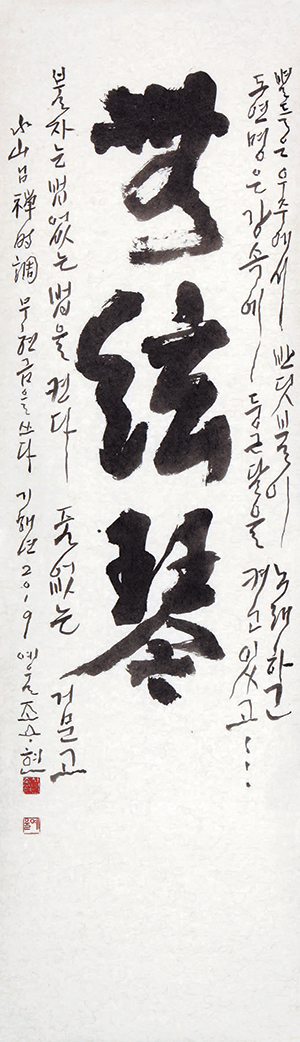 별들은 우주에서 반딧불이 노래하고
도연명은 강속에 둥근달을 켜고 있고…
無絃琴
불자는 법없는 법을 켠다 줄없는 거문고
山님 禪時調 무현금을 쓰다 기해년 2019 조수현